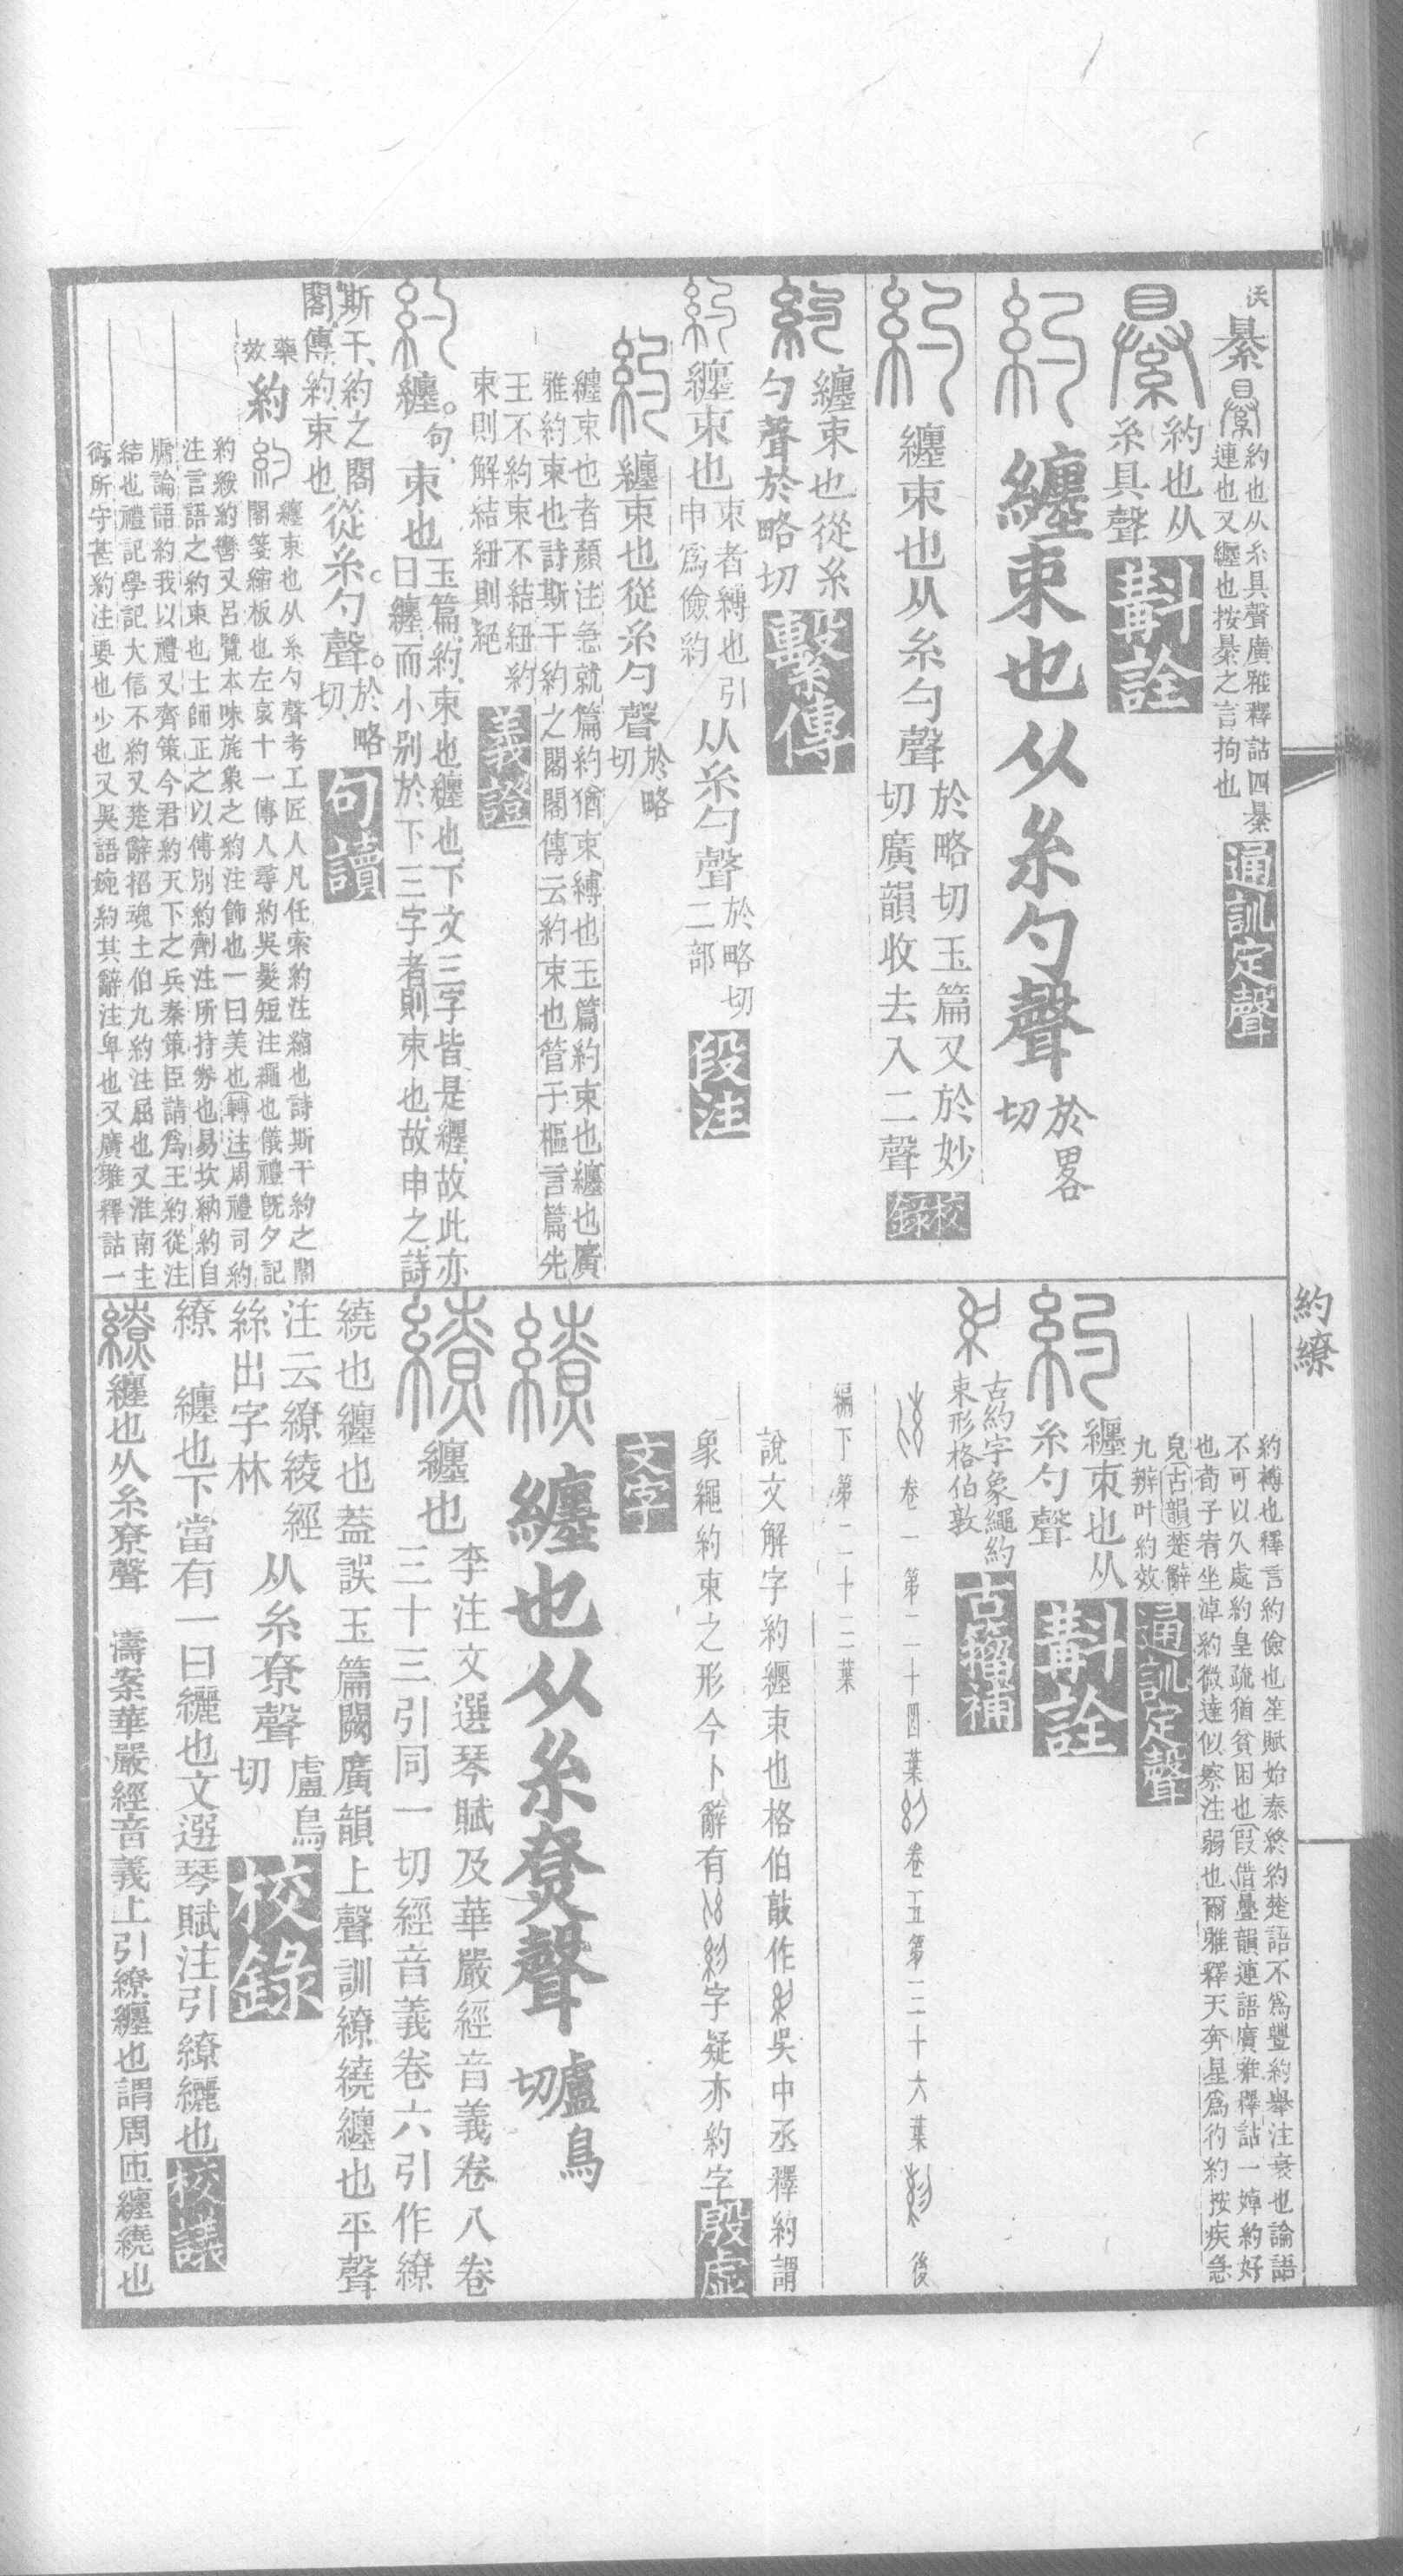 沃
綦
約也从糸具聲廣雅釋詁四綦
連也又纏也按綦之言拘也
通訓定聲
約也从
糸具聲
斠詮
約
纏束也从糸勺聲
於畧
切
約
纏束也从糸勺聲
於略切玉篇又於妙
切廣韻收去入二聲
校錄
約
纏束也從糸
勺聲於略切
繫傳
約
纏束也
束者縛也引
申爲儉約
从糸勺聲
於略切
二部
段注
約
纏束也從糸勺聲
於略
切
纏束也者顏注急就篇約猶束縛也玉篇約束也纏也廣
雅約束也詩斯干約之閣閣傳云約束也管子樞言篇先
王不約束不結紐約
束則解結紐則絕
義證
約
纏。句、束也
玉篇、約、束也纏也下文三字皆是纏、故此亦
曰纏、而小別於下三字者、則束也、故申之、詩
斯干、約之閣
閣、傳、約、束也
從糸。勺聲。
於略
切、
句讀
藥
效
約
約
纏束也从糸勺聲考工匠人凡任索約注縮也詩斯干約之閣
閣箋縮板也左哀十一傳人尋約吳髮短注繩也儀禮旣夕記
約綏約轡又呂覽本味旄象之約注飾也一曰美也轉注周禮司約
注言語之約束也士師正之以傅別約劑注所持劵也易坎納約自
牖論語約我以禮又齊策今君約天下之兵秦策臣請爲王約從注
結也禮記學記大信不約又楚辭招魂土伯九約注屈也又淮南主
術所守甚約注要也少也又吳語婉約其辭注卑也又廣雅釋詁一
約繚
約薄也釋言約儉也笙賦始泰終約楚語不爲豐約舉注衰也論語
不可以久處約皇疏猶貧困也叚借疊韻連語廣雅釋詁一婥約好
也荀子宥坐淖約微達似察注弱也爾雅釋天奔星爲彴約按疾急
皃古韻楚辭
九辨叶約效
通訓定聲
約
纏束也从
糸勺聲
斠詮
古約字象繩約
束形格伯敦
古籀補
卷一第二十四葉
卷五第三十六葉
後
編下第二十三葉
說文解字約纏束也格伯敦作
吳中丞釋約謂
象繩約束之形今卜辭有
字疑亦約字
殷虛
文字
繚
纏也从糸尞聲
盧鳥
切
繚
纏也
李注文選琴賦及華嚴經音義卷八卷
三十三引同一切經音義卷六引作繚
繞也纏也葢誤玉篇闕廣韻上聲訓繚繞纏也平聲
注云繚綾經
絲出字林
从糸尞聲
盧鳥
切
校錄
繚
纏也下當有一曰纚也文選琴賦注引繚纚也
校議
繚
纏也从糸尞聲
濤案華嚴經音義上引繚纏也謂周匝纏繞也